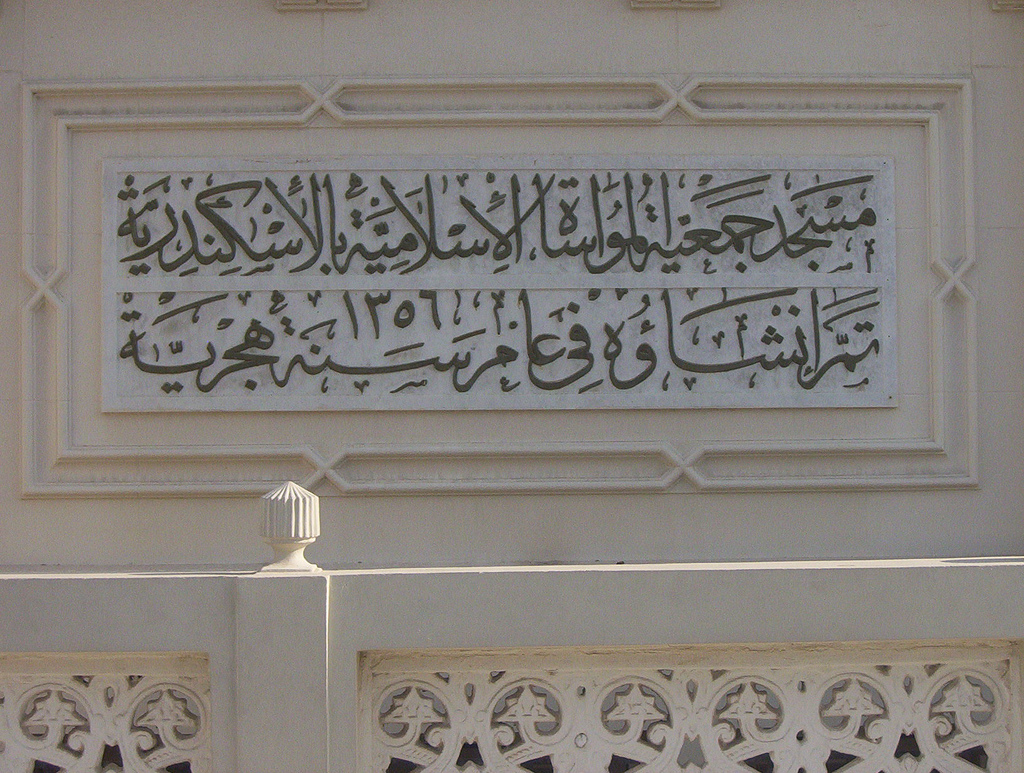 مسجد جمعية المواساة الإسلامية بالأسكندرية
تم إنشاؤه في عام سنة ١٣٥٦ هجرية